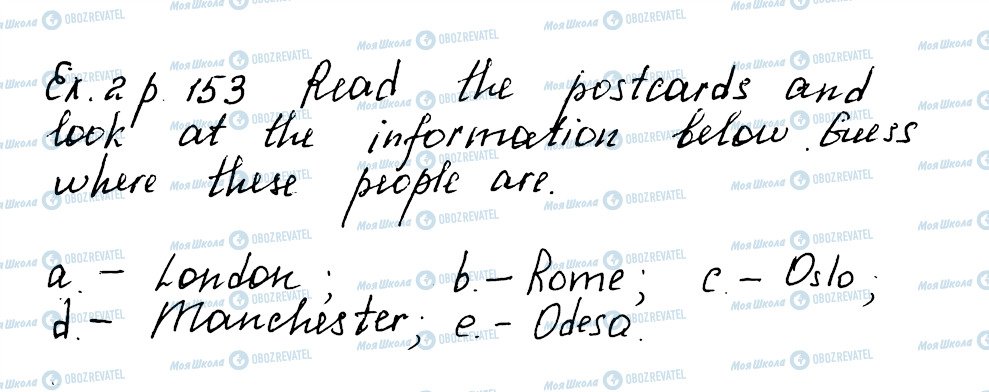 Ex. 2 p. 153 Read the postcards and
look at the information below. Guess
where these people are.
a. – London; b. – Rome; c. – Oslo;
d. – Manchester; e. – Odesa.